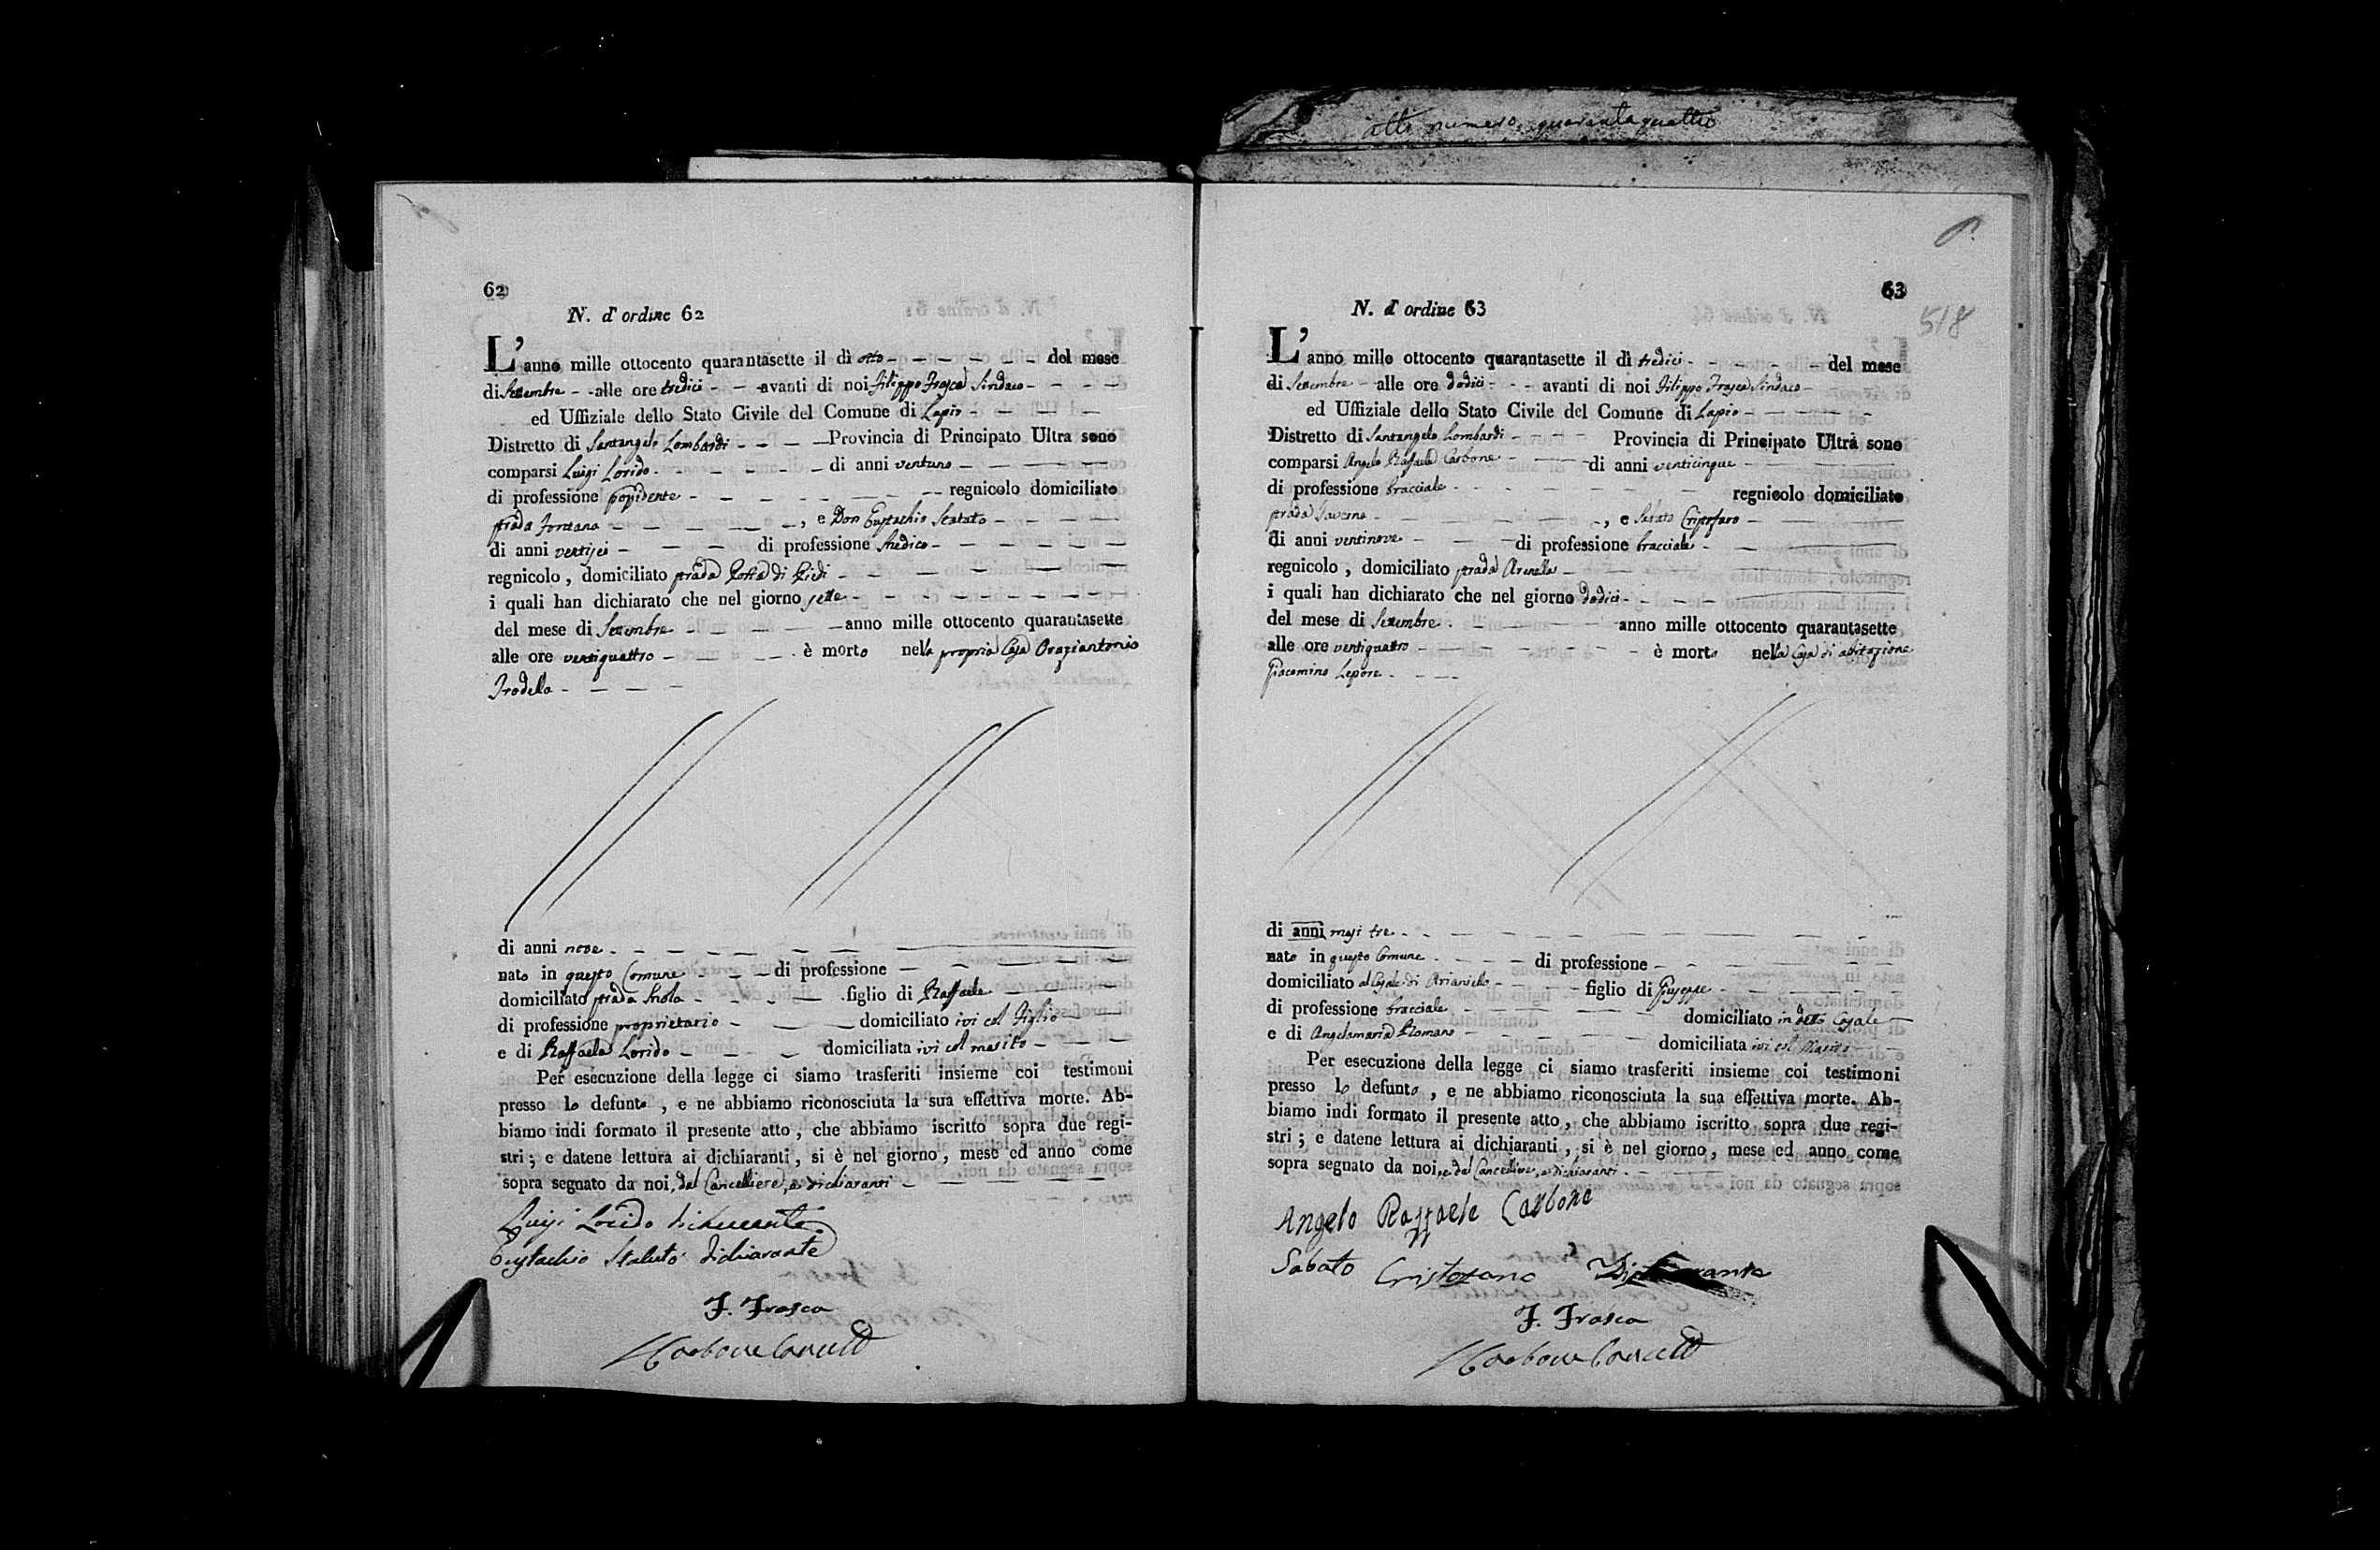 atto numero quarantaquattro
62
N. d'ordine 62
L'anno mille ottocento quarantasette il dì otto del mese
di Settembre alle ore tredici avanti di noi Filippo Frasca Sindaco
ed Uffiziale dello Stato Civile del Comune di Lapio
Distretto di Santangelo Lombardi Provincia di Principato Ultra sono
comparsi Luigi Lorido di anni ventuno
di professione possidente regnicolo domiciliato
strada Fontana , e Don Eustachio Statuto
di anni ventisei di professione Medico
regnicolo , domiciliato strada di Piedi
i quali han dichiarato che nel giorno sette
del mese di Settembre anno mille ottocento quarantasette
alle ore ventiquattro è morto nella propria Casa Oraziantonio
Trodella
di anni nove
nato in questo Comune di professione
domiciliato strada figlio di Raffaele
di professione proprietario domiciliato ivi col Figlio
e di Raffaela Lorido domiciliata ivi col marito
Per esecuzione della legge ci siamo trasferiti insieme coi testimoni
presso lo defunto , e ne abbiamo riconosciuta la sua effettiva morte. Ab-
biamo indi formato il presente atto , che abbiamo iscritto sopra due regi-
stri ; e datene lettura ai dichiaranti , si è nel giorno , mese ed anno come
sopra segnato da noi, dal Cancelliere, e dichiaranti
Luigi Lorido dichiarante
Eustachio Statuto dichiarante
F. Frasca
63
518
N. d'ordine 63
L'anno mille ottocento quarantasette il dì tredici del mese
di Settembre alle ore dodici avanti di noi Filippo Frasca Sindaco
ed Uffiziale dello Stato Civile del Comune di Lapio
Distretto di Santangelo Lombardi Provincia di Principato Ultra sono
comparsi Angelo Raffaele Carbone di anni venticinque
di professione bracciale regnicolo domiciliato
strada , e Sabato Cristofaro
di anni ventinove di professione bracciale
regnicolo , domiciliato strada Arenella
i quali han dichiarato che nel giorno dodici
del mese di Settembre anno mille ottocento quarantasette
alle ore ventiquattro è morto nella Casa di abitazione
Giacomino Lepore
di anni mesi tre
nato in questo Comune di professione
domiciliato al Casale di Arianiello figlio di Giuseppe
di professione bracciale domiciliato in detto Casale
e di Angelamaria Romano domiciliata ivi col Marito
Per esecuzione della legge ci siamo trasferiti insieme coi testimoni
presso lo defunto , e ne abbiamo riconosciuta la sua effettiva morte. Ab-
biamo indi formato il presente atto , che abbiamo iscritto sopra due regi-
stri ; e datene lettura ai dichiaranti , si è nel giorno , mese ed anno come
sopra segnato da noi, e dal Cancelliere, e dichiaranti
Angelo Raffaele Carbone
Sabato Cristofano
F. Frasca